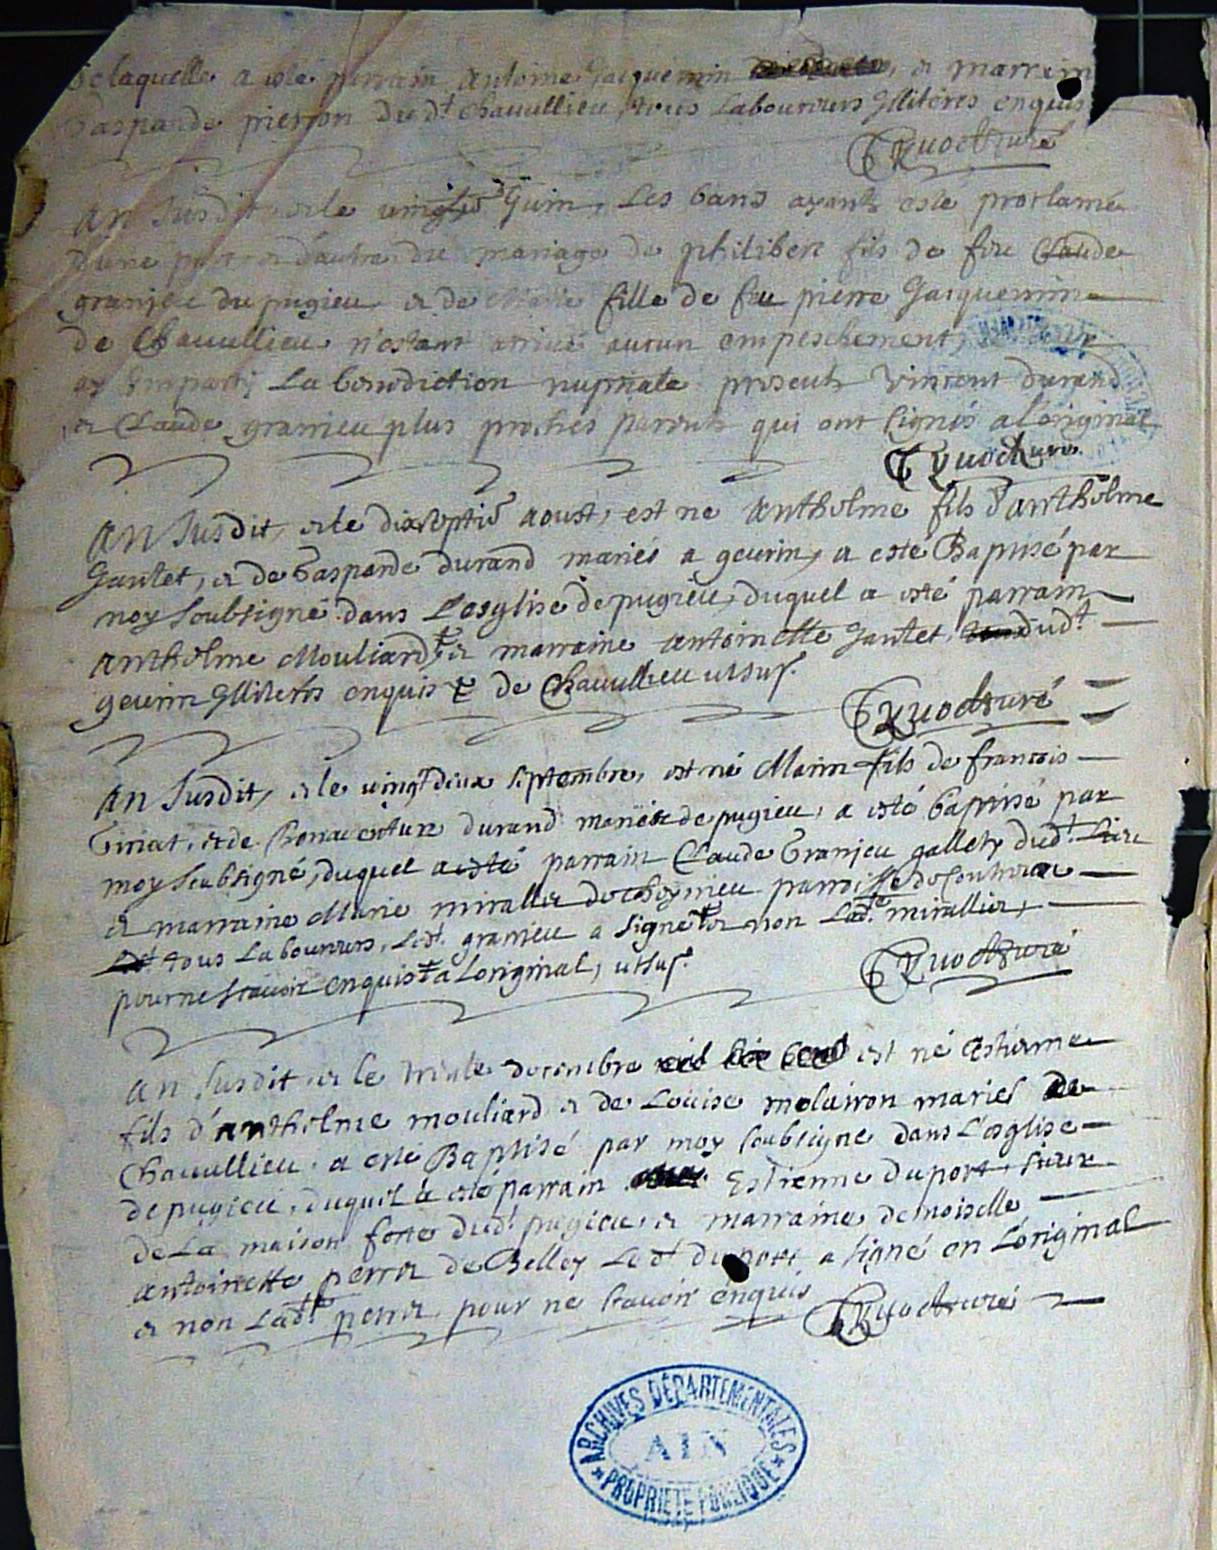 de laquelle a esté parrain antoine Jacquemin et marrain
Gasparde pierron du dt Chavullieu, tous Laboureurs Illiteres enquis
Curé
an susdit et le vingt Juin, Les bans ayants esté proclamé
d'une part et d'autre du mariage de philibert fils de feu Claude
granjeu du pugieu et de Marie fille de feu pierre Jacquemin
de Chavullieu n'estant arrivé aucun empeschement,
ay Imparty La benediction nuptiale presents Vincent durand
et Claude granieu plus proches parents qui ont signés a Loriginal
Curé
an susdit, et le dixseptie aoust, est né anthelme fils d'anthelme
Gantet, et de Gasparde durand mariés a gevrin, a esté Baptisé par
moy soubsigné dans L'esglise de pugieu, duquel a esté parrain
anthelme Mouliard, et marraine antoinette Gantet, dudt
gevrin Illiteres enquis & de Chavullieu utsus.
Curé
an susdit, et le vingt deux septembre, est né Marin fils de francois
Giriat, et de Bonaventure durand mariés de pugieu, a esté baptisé par
moy soubsigné, duquel a esté parrain Claude Granjeu gallety dudt Lieu
et marraine Marie mirallier de cheynieu parroisse de Contrevoz
tous Laboureurs, Ledt granjeu a signé et non Ladte mirallier,
pour ne scavoir enquis a Loriginal, utsus.
Curé
an susdit et le trente decembre est né Estienne
fils d'anthelme mouliard et de Louise molairon mariés de
Chavullieu, a esté Baptisé par moy soubsigné dans L'esglise
de pugieu, duquel a esté parrain Estienne duport, sieur
de La maison forte dudt pugieu, et marraine demoiselle
antoinette perret de Belley Ledt duport a signé en L'original
et non Ladte perret pour ne scavoir enquis
Curé
ARCHIVES DÉPARTEMENTALES
AIN
PROPRIÉTÉ PUBLIQUE